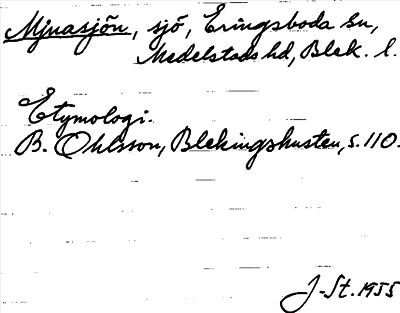 Mjuasjön, sjö, Eringsboda sn,
Medelstads hd, Blek. l.
Etymologi.
B. Ohlsson, Blekingskusten, s. 110.
J-St. 1955